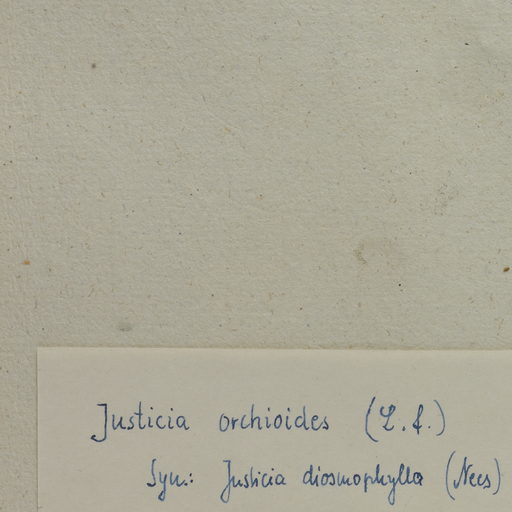 Justicia orchioides (L.f.)
Syn.: Justicia diosmophylla (Nees)